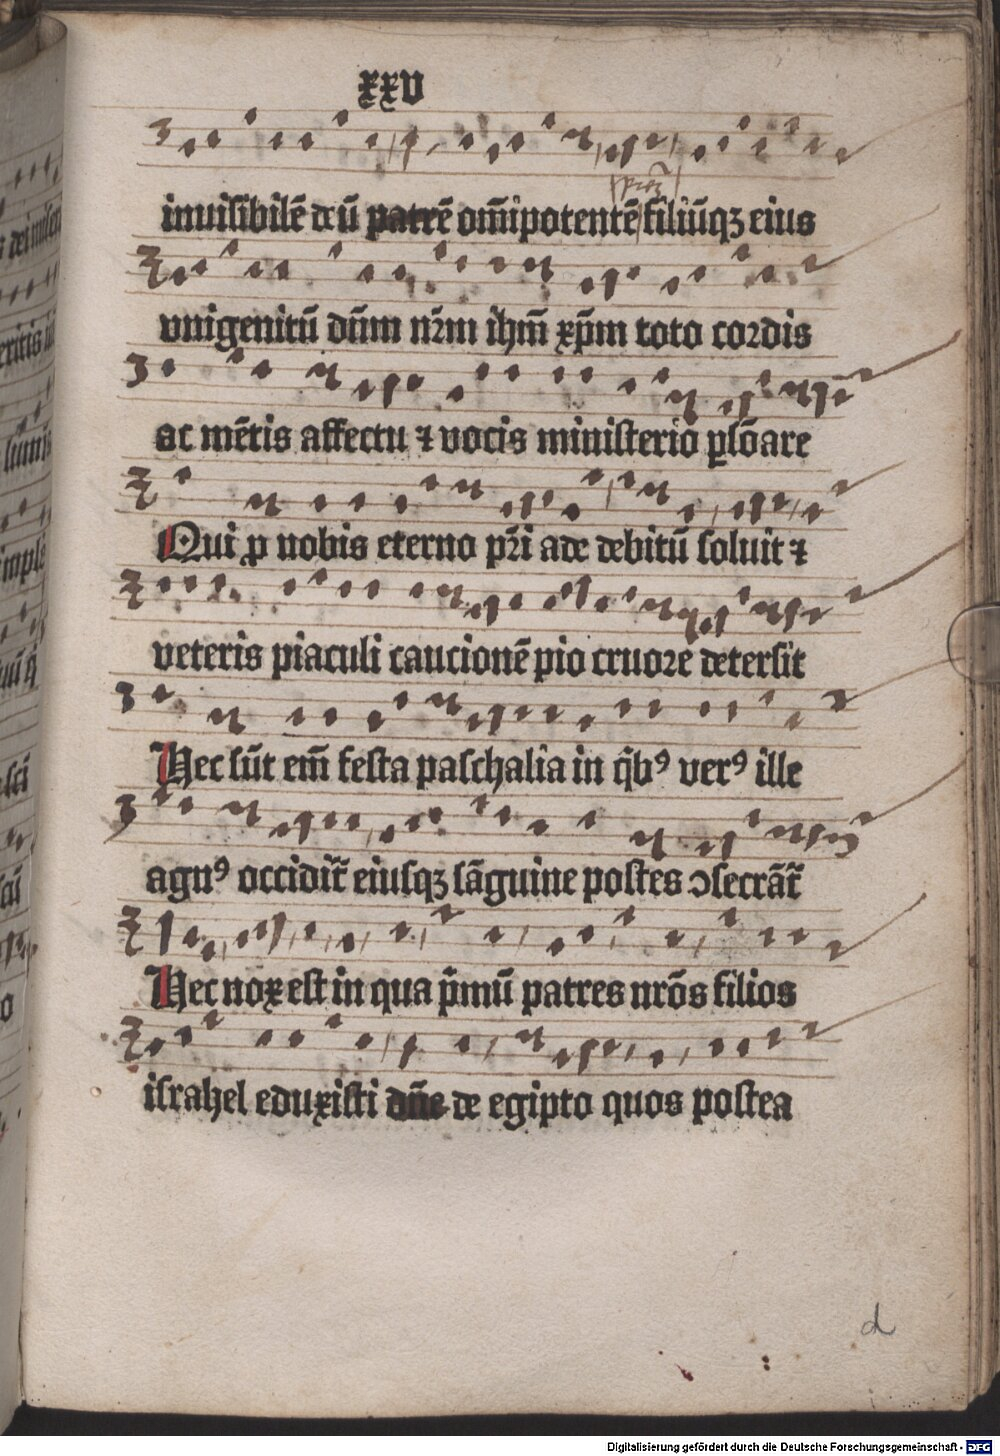 xxv
inuisibilē deū patrē om̄ipotentē filiūqȝ eius
vnigenitū dn̄m nr̄m ihm̄ xp̄m toto cordis
ac mētis affectu ⁊ vocis ministerio ꝑsōare
Qui ꝓ nobis eterno pr̄i ade debitū soluit ⁊
veteris piaculi caucionē pio cruore detersit
Hec sūt em̄ festa paschalia in q̄bꝰ verꝰ ille
agnꝰ occidit̄ eiusqȝ sāguine postes ↄsecrāt̄
Hec nox est in qua p̄mū patres nr̄os filios
israhel eduxisti dn̄e de egipto quos postea
d
Digitalisierung gefördert durch die Deutsche Forschungsgemeinschaft - DFG